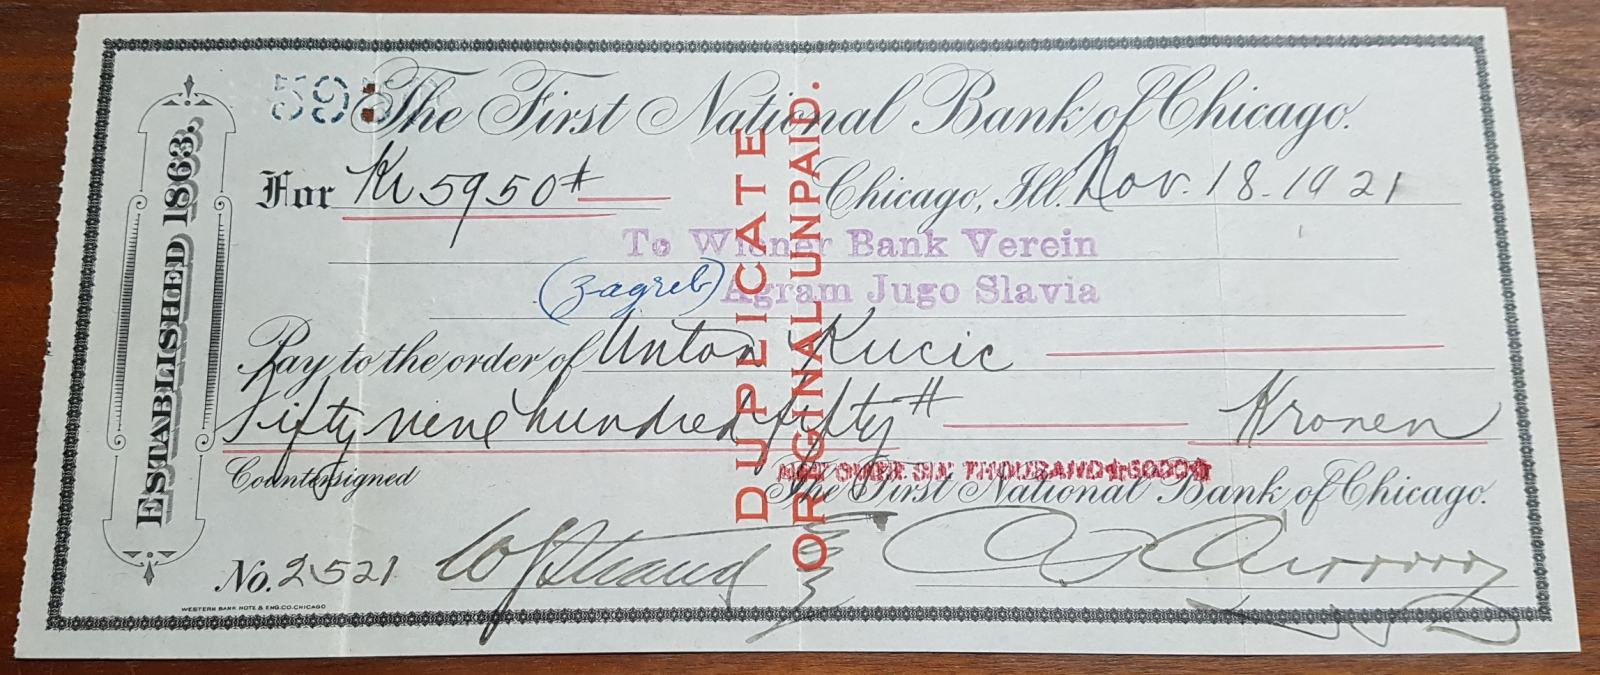 ESTABLISHED 1863.
The First National Bank of Chicago.
For Kr 5950#
Chicago, Ill. Nov. 18 - 1921
To Wiener Bank Verein
(Zagreb) Agram Jugo Slavia
Pay to the order of Anton Kucic
Fifty nine hundred fifty # Kronen
DUPLICATE
ORIGINAL UNPAID.
NOT OVER SIX THOUSAND $6000$
Countersigned
The First National Bank of Chicago.
No. 2521
WESTERN BANK NOTE & ENG. CO. CHICAGO